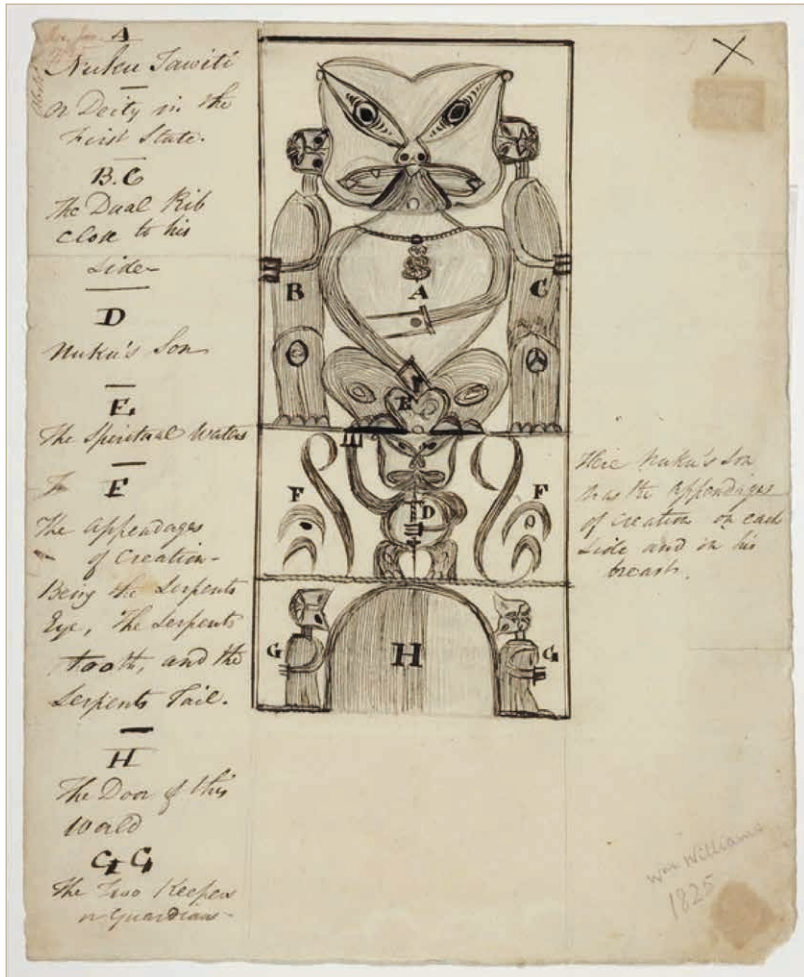 A
Nuku Tawiti
or Deity in the
First State.
B.C
The Dual Rib
close to his
side
D
Nuku's Son
E.
The Spiritual Waters
F
The appendages
of Creation-
Being the Serpents
Eye, The Serpents
tooth, and the
Serpents Tail.
H
The Door of this
World
G G
The Two Keepers
or Guardians-
X
B
A
C
E
F
D
F
G
H
G
Here Nuku's Son
has the appendages
of creation on each
side and in his
breast.
Wm Williams
1825